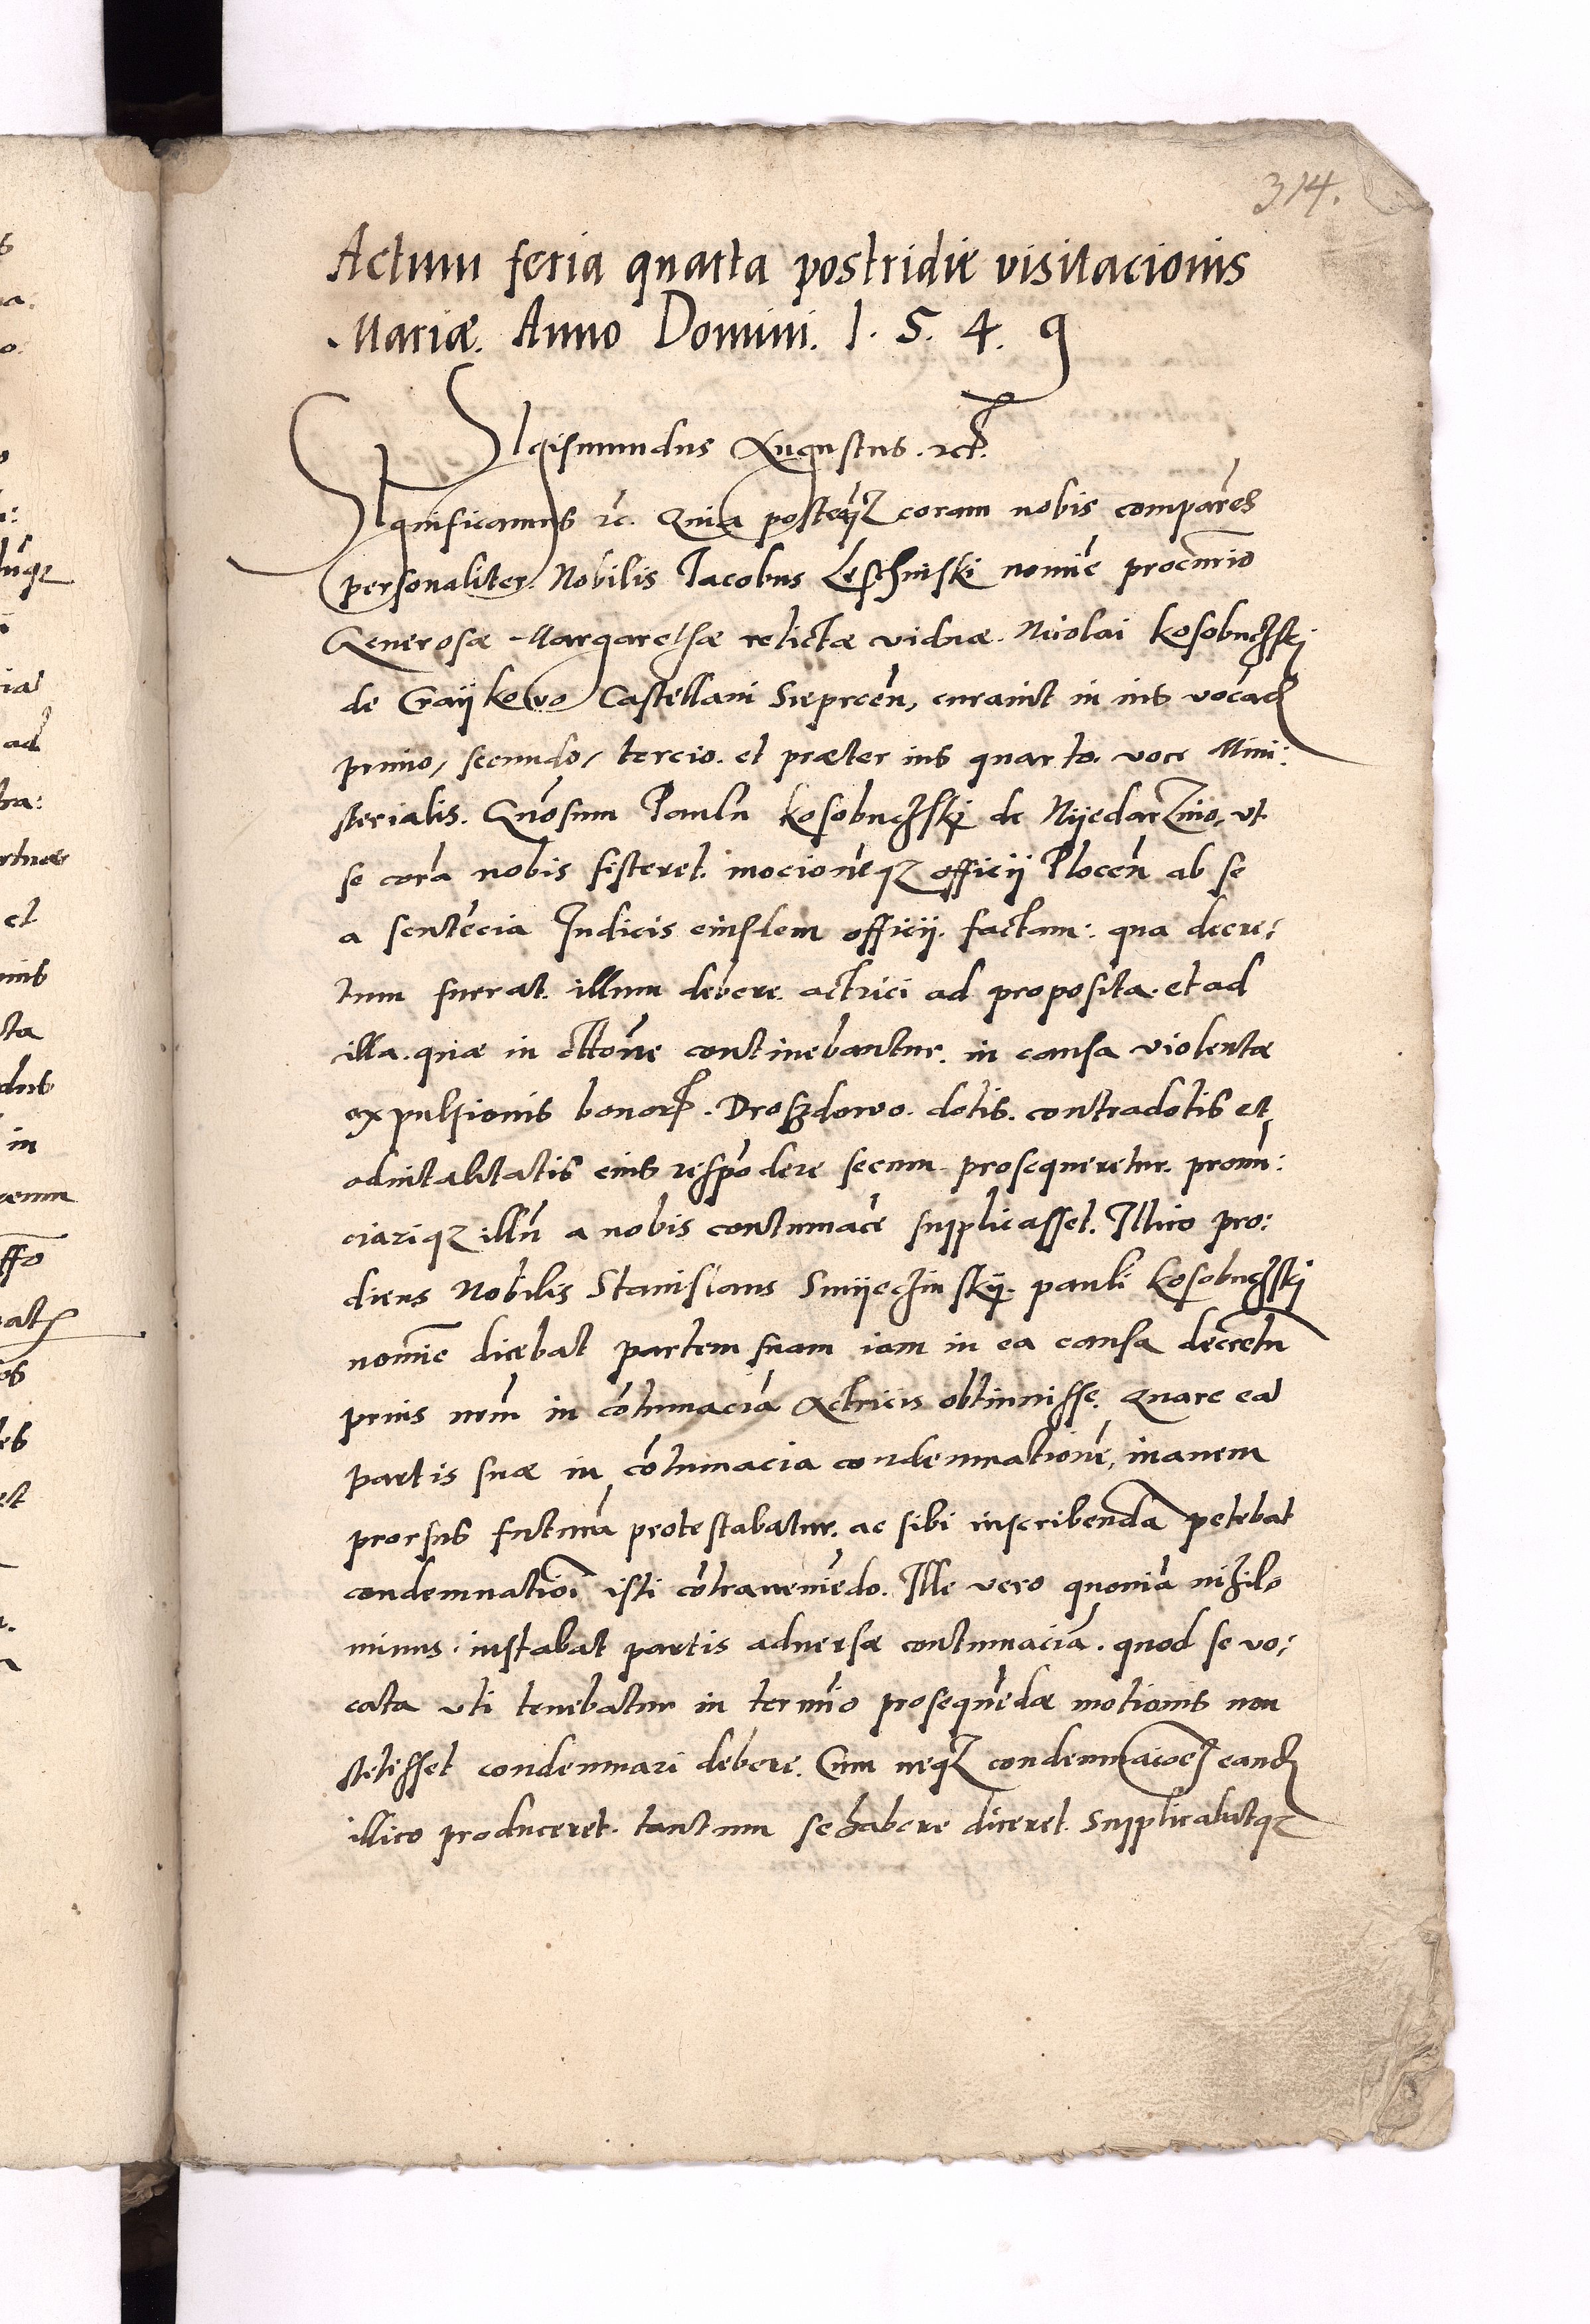 314.
Actum feria quarta postridie visitacionis
Mariæ. Anno Domini. 1. 5. 4. 9
Sigismundus Augustus. etc.
Significamus etc. Quia posteaq̃ꝫ coram nobis comparẽs
personaliter. Nobilis Jacobus Leschinski nomiẽ procurio
Generosæ Margarethæ relictæ viduæ. Nicolai Kosobuczski
de Grayikowo Castellani Sieprcẽn, curavit in ius vocãd
primo, secundo, tercio. et præter ius quarto. voce Mini:
sterialis. Gñosum Paulũ Kosobuczskj de Nyedarzino, vt
se corã nobis sisteret. mocionẽqꝫ officij Plocẽn ab se
a sentẽcia Judicis eiusdem officij. factam: qua decre:
tum fuerat. illum debere. actrici ad proposita. et ad
illa. quæ in cittõne continebantur. in causa violentæ
expulsionis bonorꝝ. Droszdowo. dotis. contradotis et
aduitalitatis eius respõdere secum prosequeretur. pronũ:
ciariqꝫ illũ a nobis contumacẽ supplicasset. Illico pro:
diens Nobilis Stanislaus Smyeczinskÿ. pauli Kosobuczskj
nomiẽ dicebat partem suam iam in ea causa decretũ
prius nrm̃ in cõtumaciã Actricis obtinuisse. Quare ea
partis suæ in cõtumacia condemnationẽ, inanem
prorsus futurã protestabatur. ac sibi inscribendã petebat
condemnatioĩ isti cõtraveniẽdo. Ille vero quoniã nihilo
minus. instabat partis adversæ contumaciã. quod se vo:
cata vti tenebatur in termĩo prosequẽdæ motionis non
stetisset condemnari debere. Cum neqꝫ condemnacoẽ eand̃
illico produceret. tantum se habere diceret. Supplicabatqꝫ